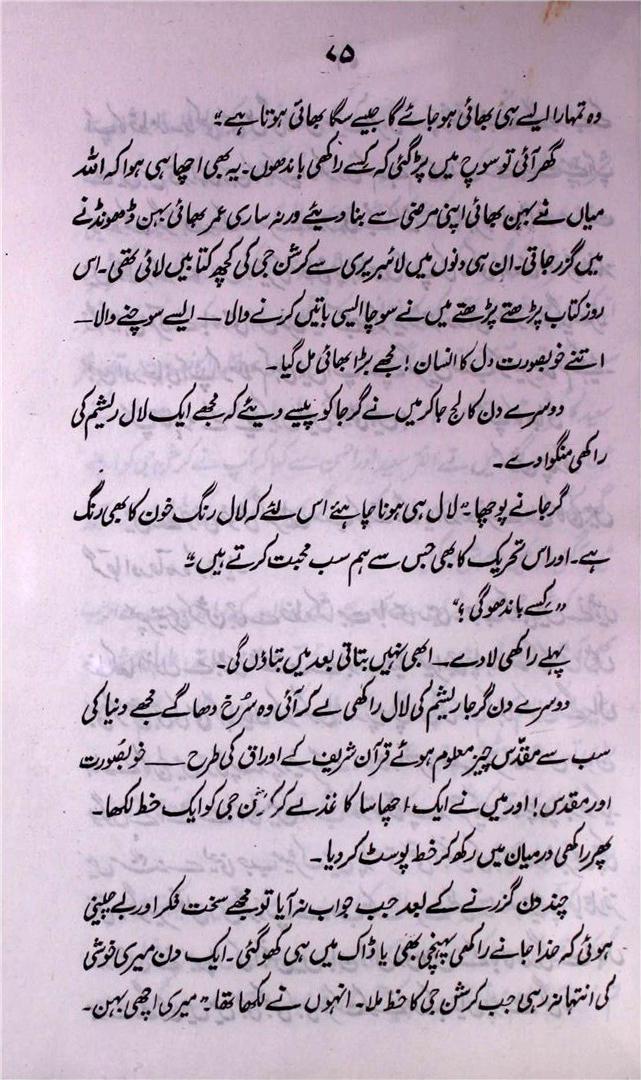 ۷۵
وہ تمہارا ایسے ہی بھائی ہو جائے گا جیسے سگا بھائی ہوتا ہے ”
گھر آئی تو سوچ میں پڑ گئی کہ کسے راکھی باندھوں۔ یہ بھی اچھا سی ہوا کہ اللہ
میاں نے بہن بھائی اپنی مرضی سے بنا دیئے ورنہ ساری عمر بھائی بہن ڈھونڈنے
میں گزر جاتی۔ ان ہی دنوں میں لائبریری سے کرشن جی کی کچھ کتابیں لائی تھی۔ اس
روز کتاب پڑھتے پڑھتے میں نے سوچا ایسی باتیں کرنے والا — ایسے سوچنے والا —
اتنے خوبصورت دل کا انسان! مجھے بڑا بھائی مل گیا۔
دوسرے دن کالج جا کر میں نے گرجا کو پیسے دیئے کہ مجھے ایک لال ریشم کی
راکھی منگوا دے۔
گرجا نے پوچھا۔ ”لال ہی ہونا چاہئے اس لئے کہ لال رنگ خون کا بھی رنگ
ہے۔ اور اس تحریک کا بھی جس سے ہم سب محبت کرتے ہیں“
”کسے باندھو گی؟“
پہلے راکھی لا دے — ابھی نہیں بتاتی بعد میں بتاؤں گی۔
دوسرے دن گرجا ریشم کی لال راکھی لے کر آئی وہ سُرخ دھاگے مجھے دنیا کی
سب سے مقدّس چیز معلوم ہوئے قرآن شریف کے اوراق کی طرح —— خوبصُورت
اور مقدس! اور میں نے ایک اچھا سا کاغذ لے کر کرشن جی کو ایک خط لکھا۔
پھر راکھی درمیان میں رکھ کر خط پوسٹ کر دیا۔
چند دن گزرنے کے بعد جب جواب نہ آیا تو مجھے سخت فکر اور بے چینی
ہوئی کہ خدا جانے راکھی پہنچی بھی یا ڈاک میں ہی کھو گئی۔ ایک دن میری خوشی
کی انتہا نہ رہی جب کرشن جی کا خط ملا۔ انہوں نے لکھا تھا۔ ”میری اچھی بہن۔